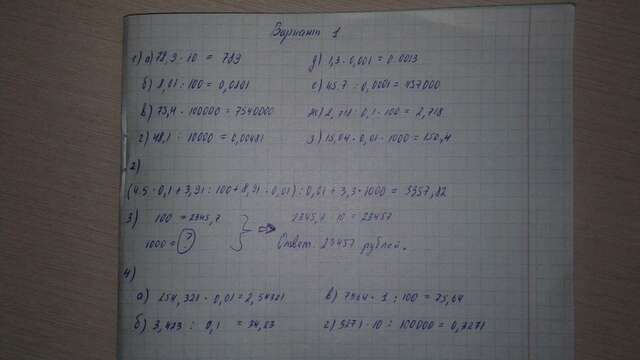 Вариант 1
1) а) 78,9 · 10 = 789 д) 1,3 · 0,001 = 0.0013
б) 8,01 : 100 = 0,0801 е) 45.7 : 0,0001 = 457000
в) 75,4 · 100000 = 7540000 ж) 2,718 : 0,1 · 100 = 2,718
г) 48,1 : 10000 = 0,00481 з) 15,04 · 0,01 · 1000 = 150,4
2)
(4.5 · 0,1 + 3,91 : 100 + 8,91 · 0,01) : 0,01 + 3,3 · 1000 = 3357,82
3) 100 = 2345,7 2345,7 · 10 = 23457
1000 = ? Ответ 23457 рублей.
4)
а) 254,321 · 0,01 = 2,54321 в) 7564 · 1 : 100 = 75,64
б) 3,423 : 0,1 = 34,23 г) 3271 · 10 : 100000 = 0,3271